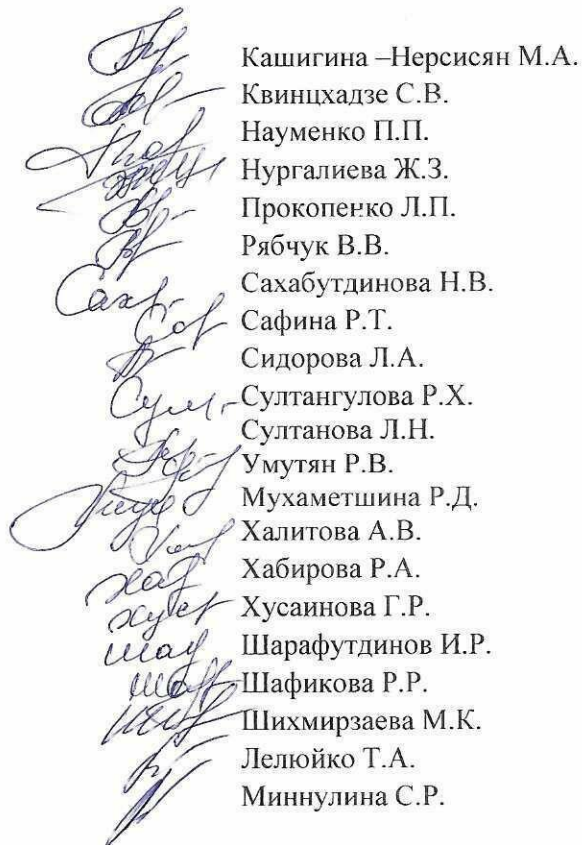 Кашигина –Нерсисян М.А.
Квинцхадзе С.В.
Науменко П.П.
Нургалиева Ж.З.
Прокопенко Л.П.
Рябчук В.В.
Сахабутдинова Н.В.
Сафина Р.Т.
Сидорова Л.А.
Султангулова Р.Х.
Султанова Л.Н.
Умутян Р.В.
Мухаметшина Р.Д.
Халитова А.В.
Хабирова Р.А.
Хусаинова Г.Р.
Шарафутдинов И.Р.
Шафикова Р.Р.
Шихмирзаева М.К.
Лелюйко Т.А.
Миннулина С.Р.